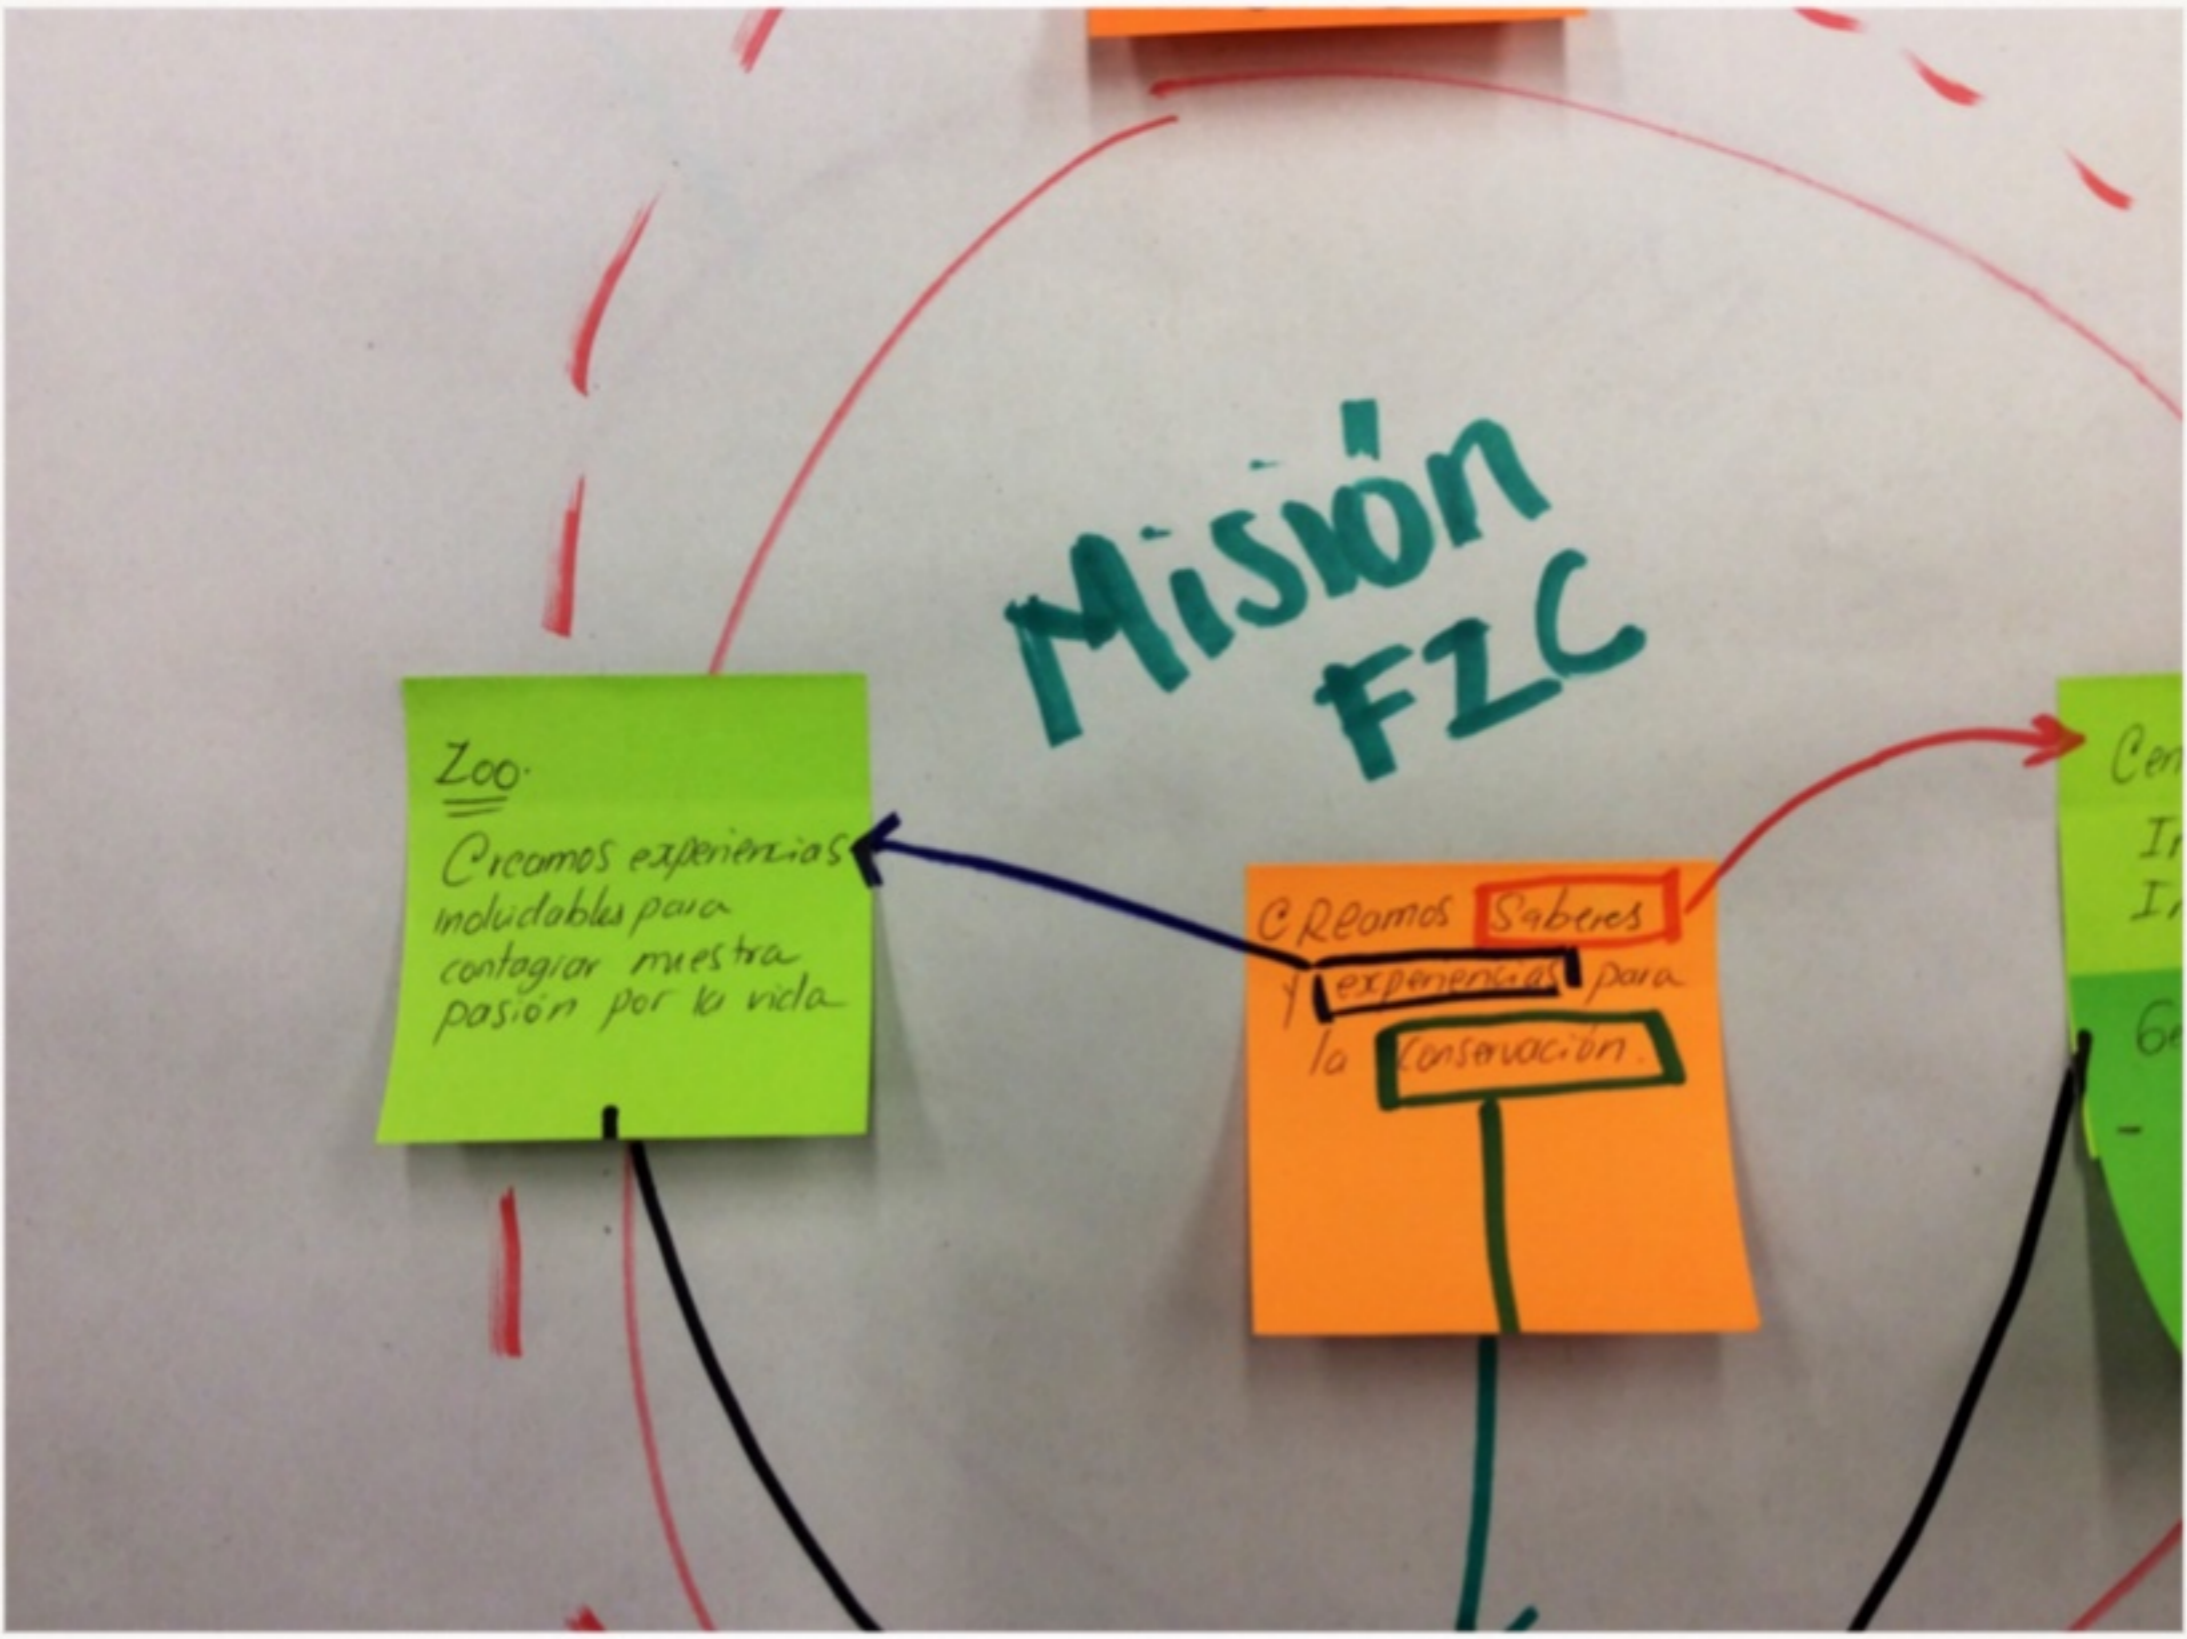 Misión
FZC
Zoo.
Creamos experiencias
inolvidables para
contagiar nuestra
pasión por la vida
CREamos Saberes
y experiencias para
la Conservación.
Cen
In
In
Ge
-